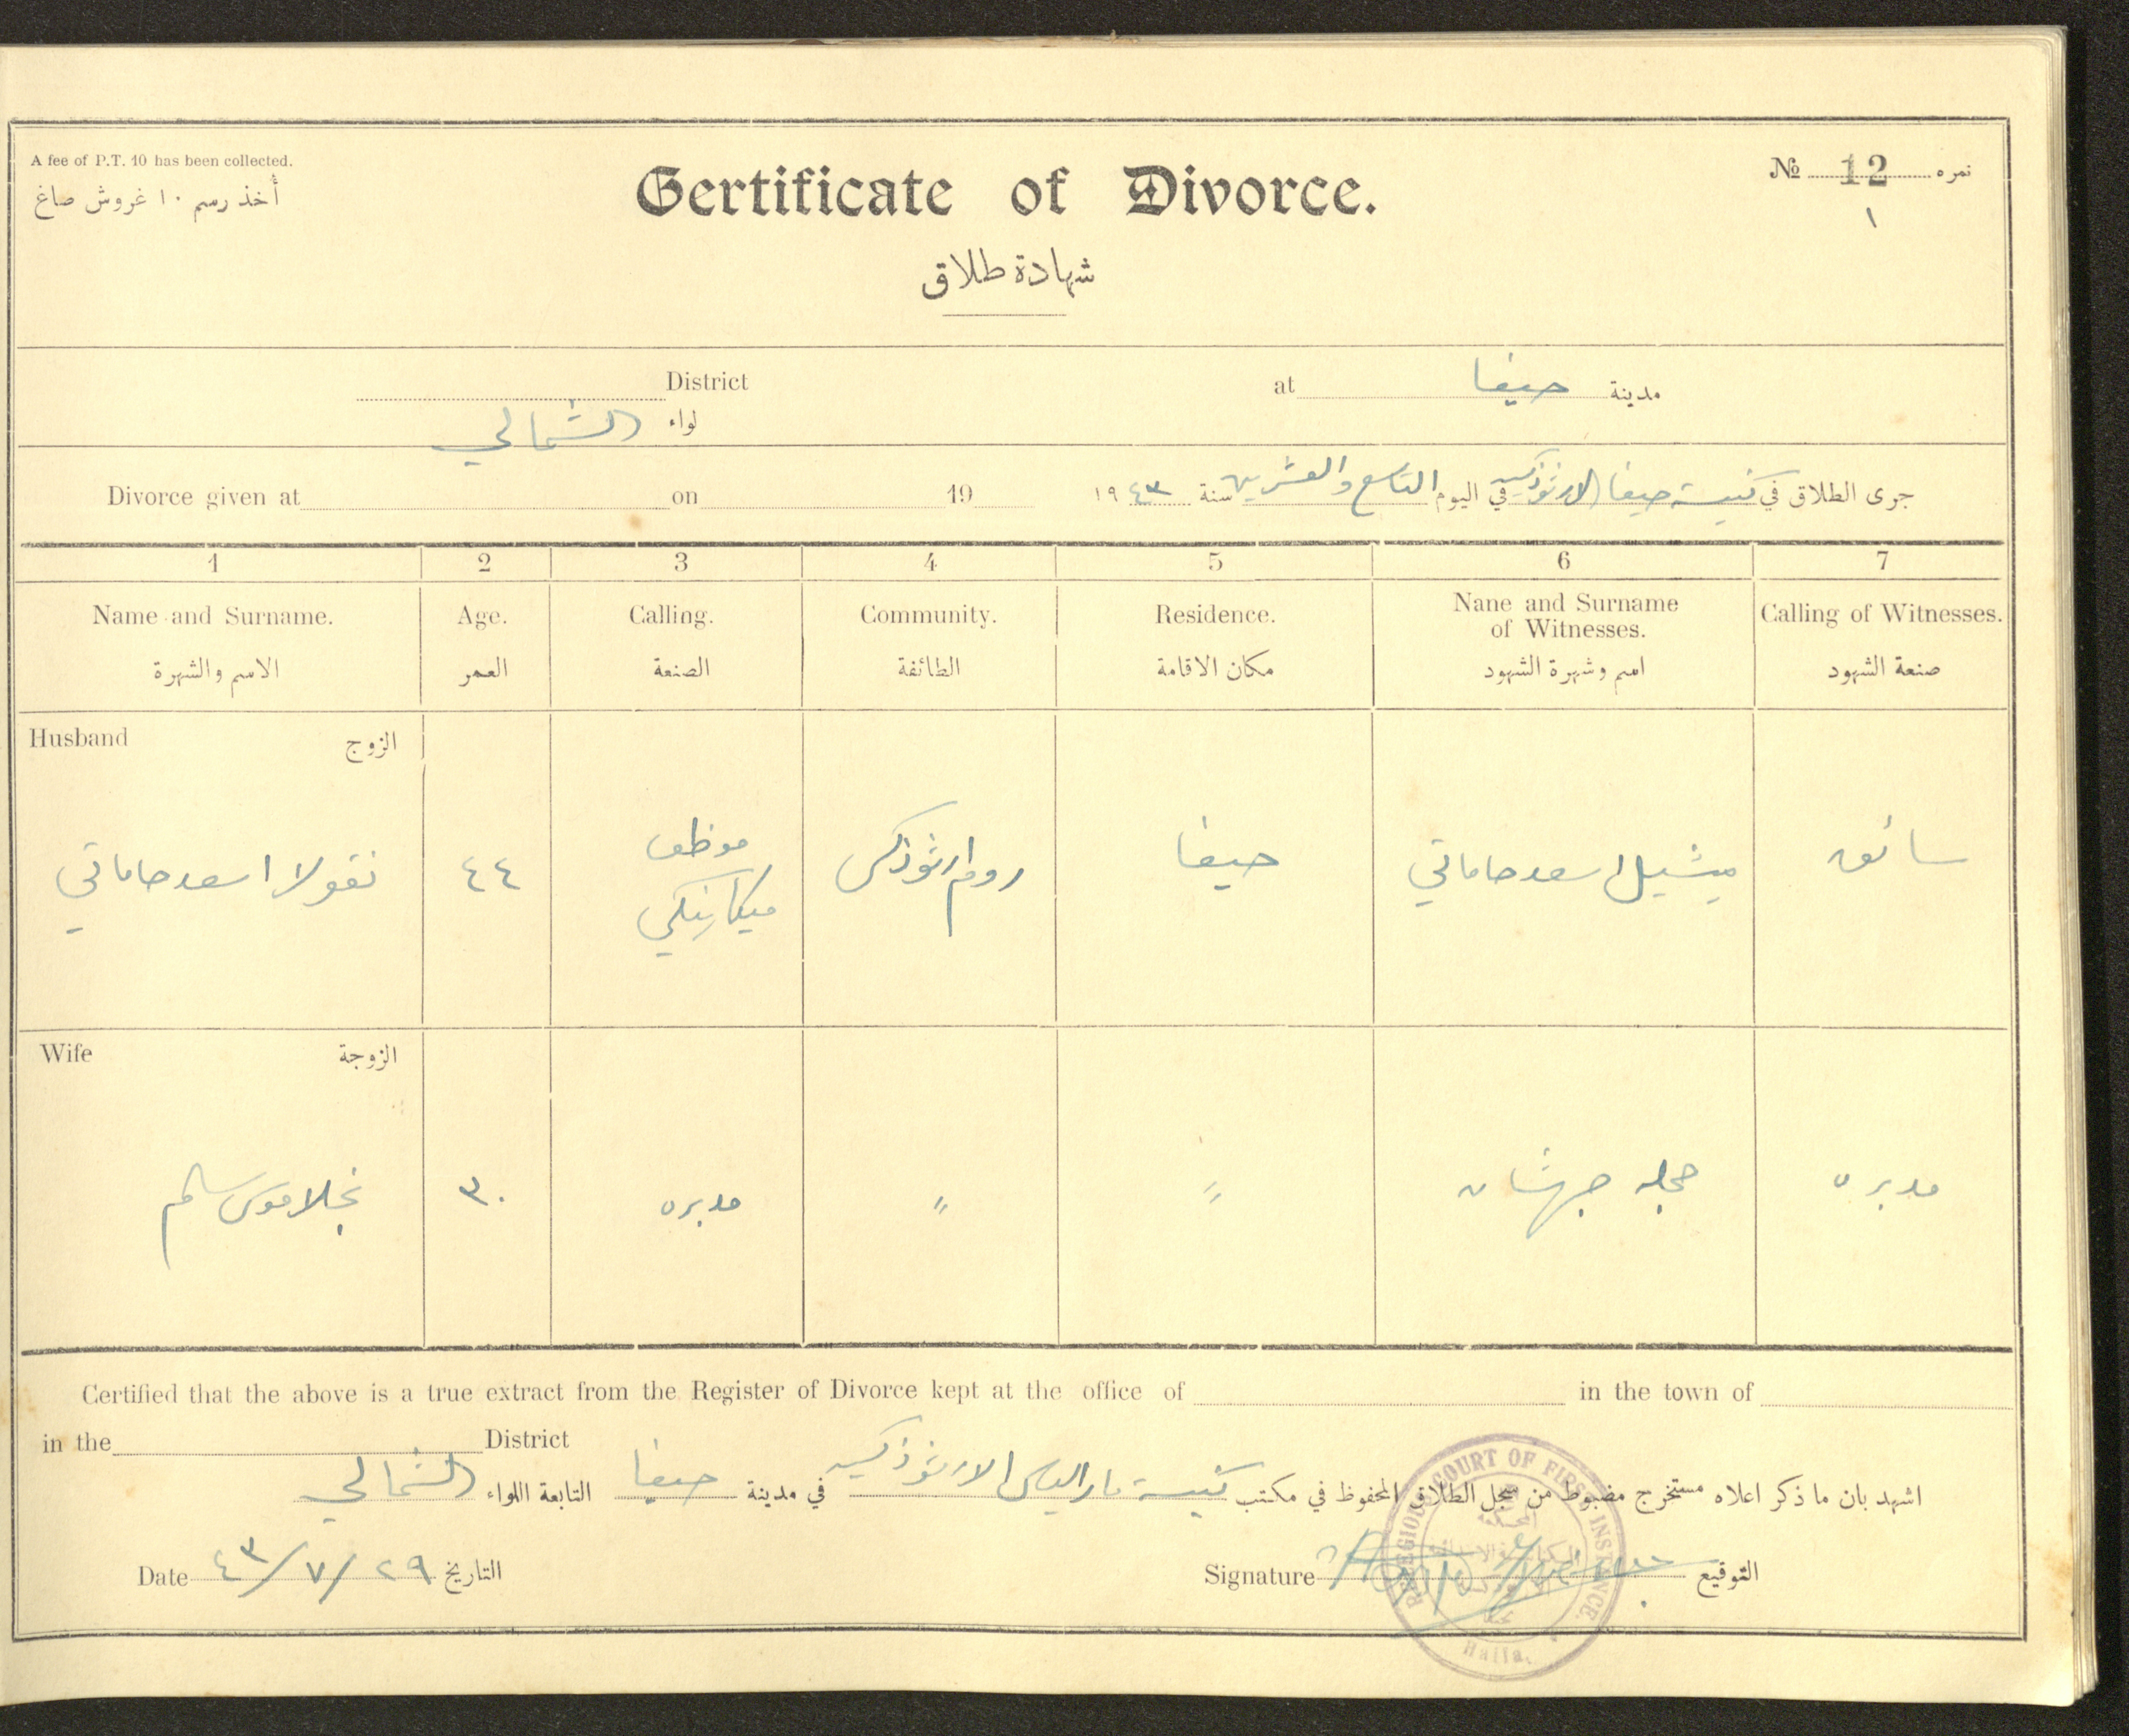 A fee of P.T. 10 has been collected.
أخذ رسم ١٠ غروش صاغ
Certificate of Divorce.
شهادة طلاق
No 12 نمره
١
District
لواء الشمالي
at حيفا مدينة
Divorce given at on 19
جرى الطلاق في كنيسة حيفا الارثوذكسية في اليوم التاسع والعشرين سنة ١٩٤٣
1 2 3 4 5 6 7
Name and Surname. Age. Calling. Community. Residence. Nane and Surname of Witnesses. Calling of Witnesses.
الاسم والشهرة العمر الصنعة الطائفة مكان الاقامة اسم وشهرة الشهود صنعة الشهود
Husband الزوج
نقولا اسعد حاماتي ٤٤ موظف ميكانيكي روم ارثوذكس حيفا ميشيل اسعد حاماتي سائق
Wife الزوجة
نجلا موسى سالم ٣٠ مدبره " " جهشان مدبره
Certified that the above is a true extract from the Register of Divorce kept at the office of in the town of
in the District
اشهد بان ما ذكر اعلاه مستخرج مضبوط من سجل الطلاق المحفوظ في مكتب كنيسة مار الياس الارثوذكسية في مدينة حيفا التابعة اللواء الشمالي
Date ٢٩/٧/٤٣ التاريخ
Signature التوقيع
RELIGIOUS COURT OF FIRST INSTANCE.
Haifa.